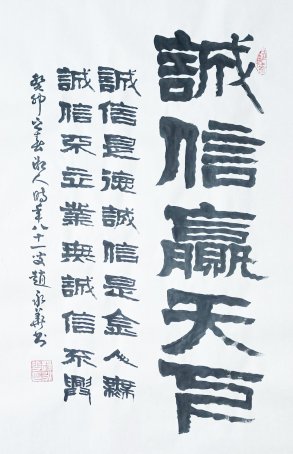 誠信贏天下
誠信是德誠信是金人無
誠信不立業無誠信不興
癸卯之春人時年八十一叟趙永華書